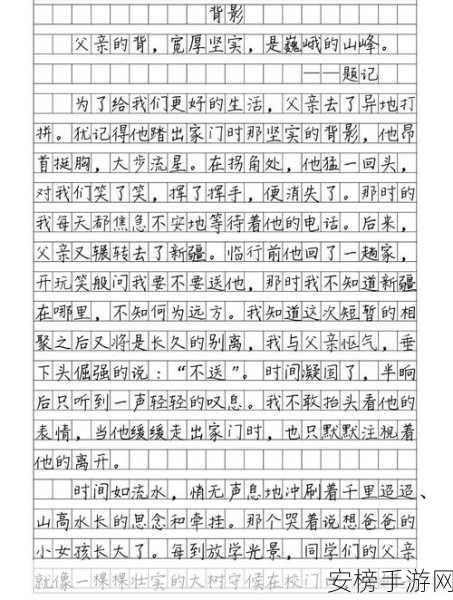 背影
父亲的背，宽厚坚实，是巍峨的山峰。
——题记
为了给我们更好的生活，父亲去了异地打
拼。犹记得他踏出家门时那坚实的背影，他昂
首挺胸，大步流星。在拐角处，他猛一回头，
对我们笑了笑，挥了挥手，便消失了。那时的
我每天都焦急不安地等待着他的电话。后来，
父亲又辗转去了新疆。临行前他回了一趟家，
开玩笑般问我要不要送他，那时我不知道新疆
在哪里，不知何为远方。我知道这次短暂的相
聚之后又将是长久的别离，我与父亲怄气，垂
下头倔强的说：“不送”。时间凝固了，半晌
后只听到一声轻轻的叹息。我不敢抬头看他的
表情，当他缓缓走出家门时，也只默默注视着
他的离开。
时间如流水，悄无声息地冲刷着千里迢迢、
山高水长的思念和牵挂。那个哭着说想爸爸的
小女孩长大了。每到放学光景，同学们的父亲
就像一棵棵壮实的大树守候在校门
安榜手游网